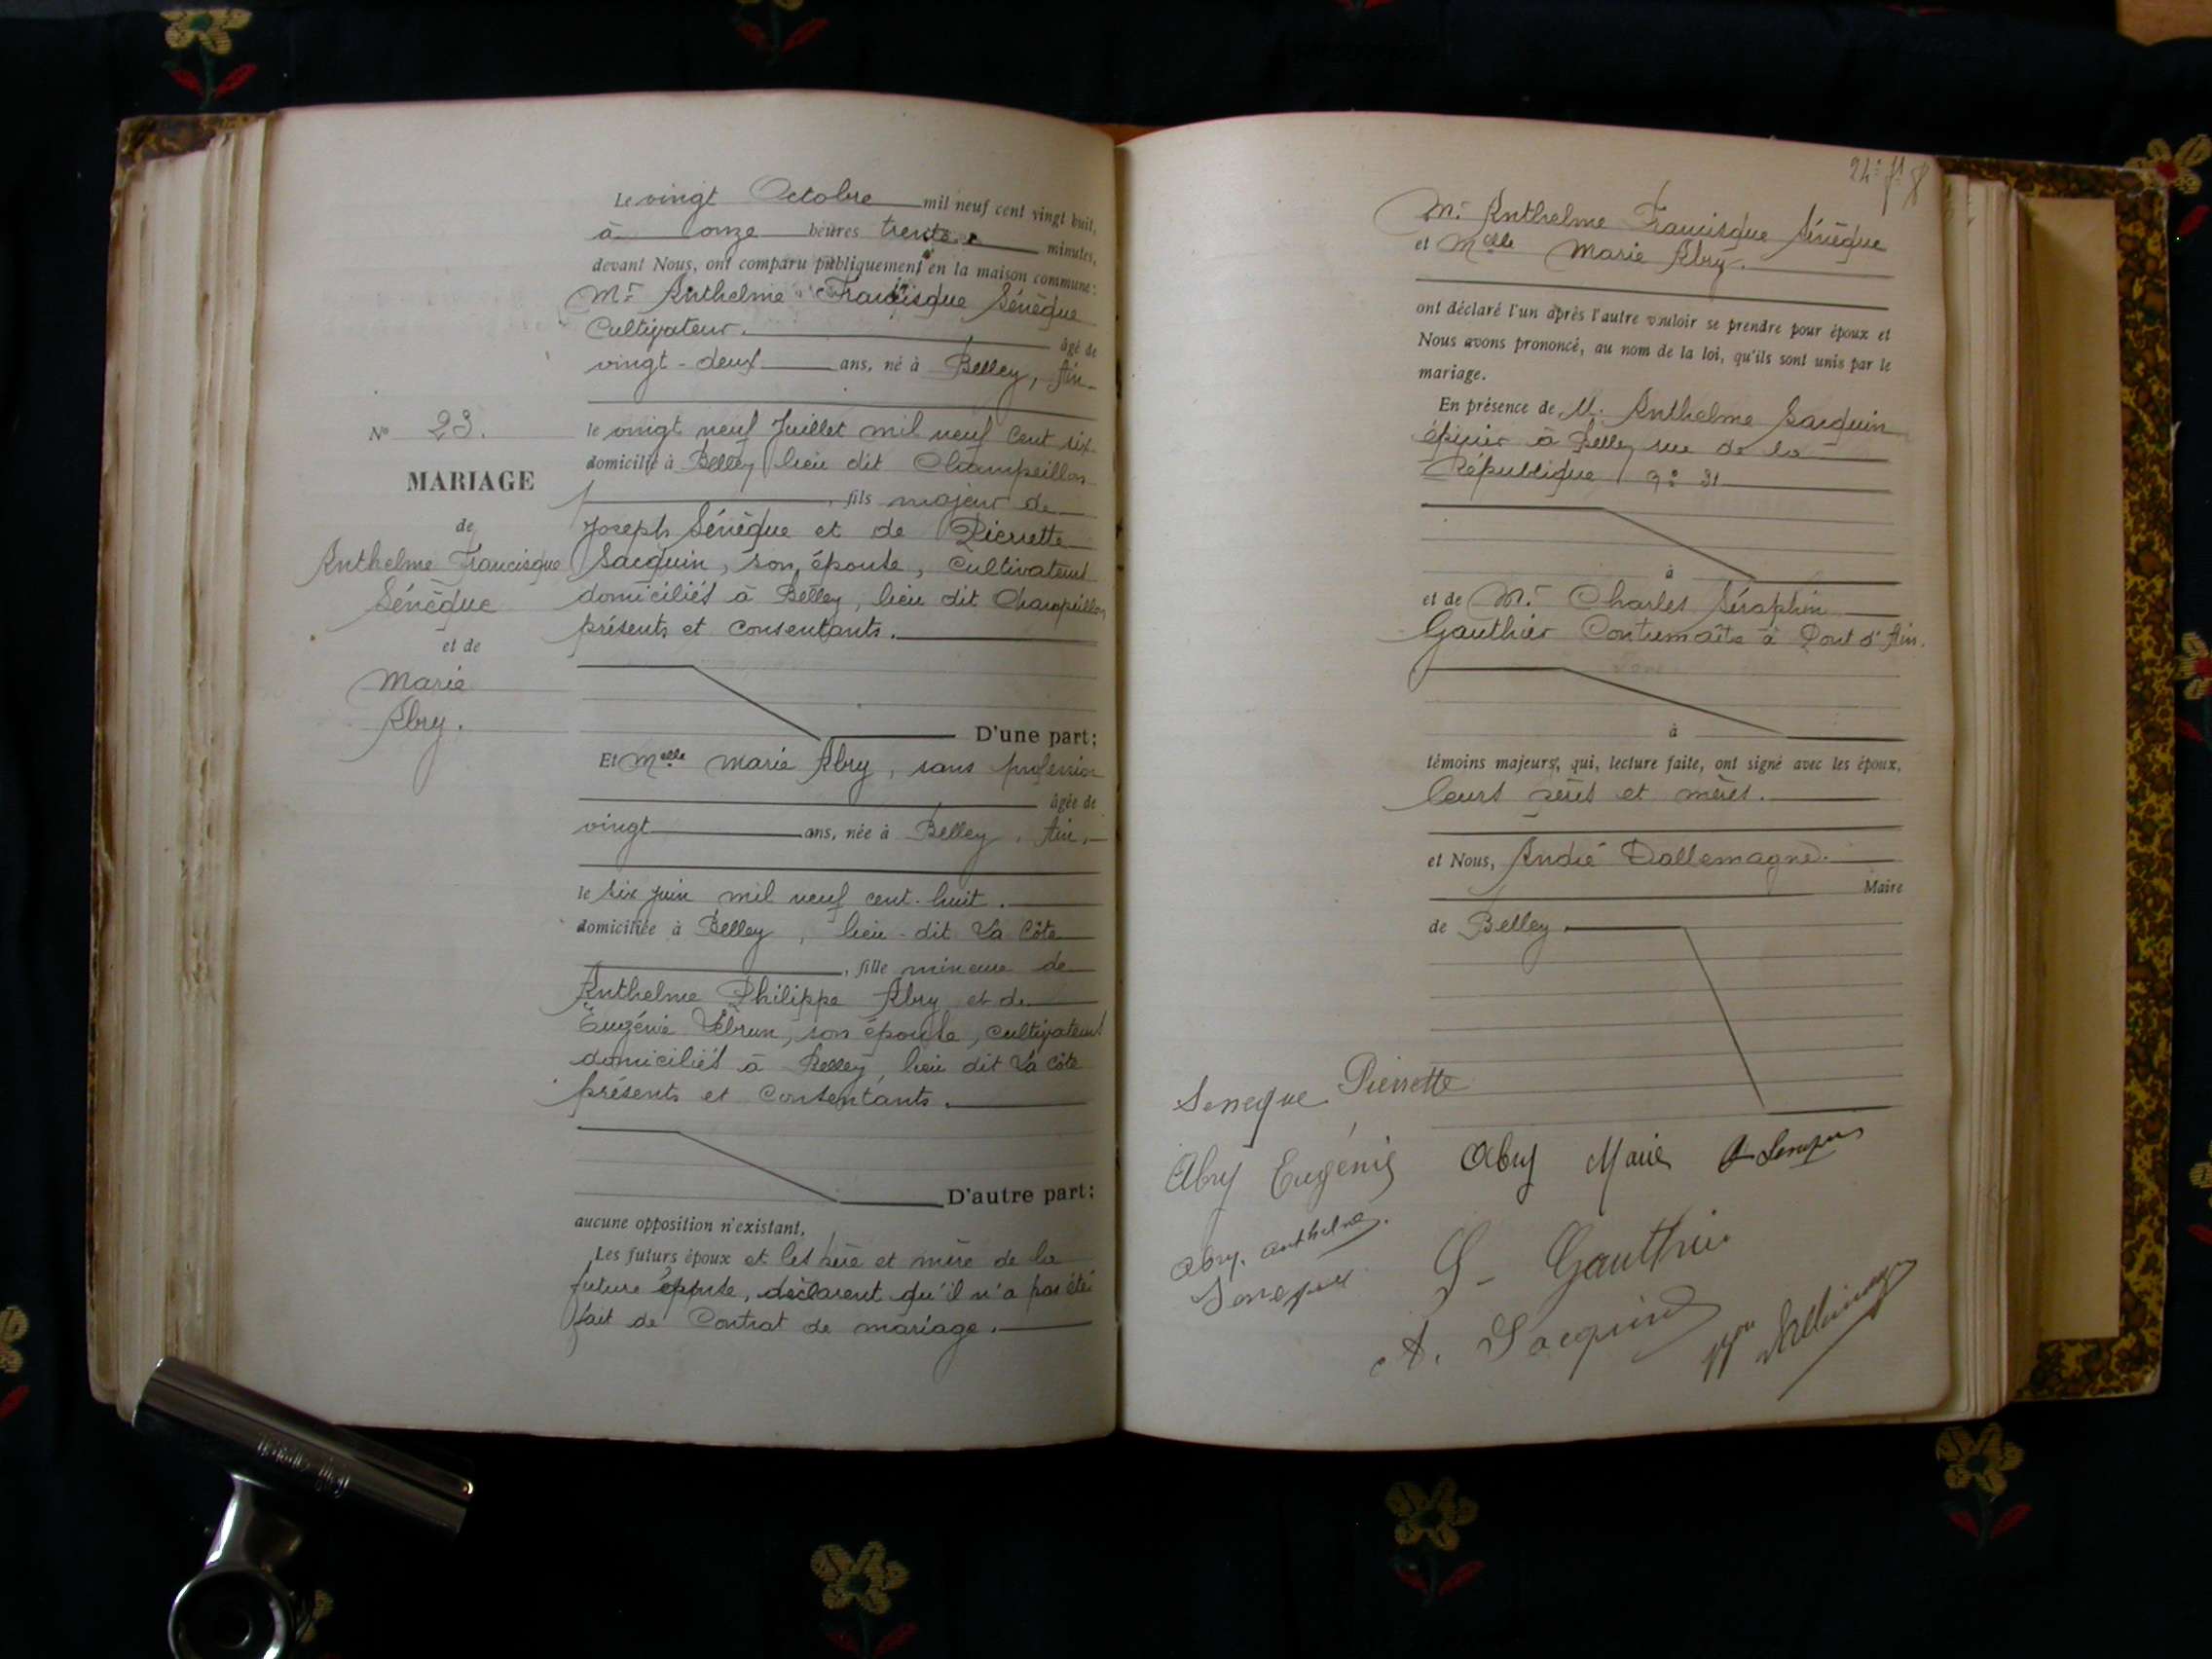 Le vingt Octobre mil neuf cent vingt huit,
à onze heures trente minutes,
devant Nous, ont comparu publiquement en la maison commune:
Mr Anthelme Francisque Sénèque
Cultivateur. âgé de
vingt-deux ans, né à Belley, Ain
le vingt neuf Juillet mil neuf cent six
domicilié à Belley lieu dit Champeillon
, fils majeur de
Joseph Sénèque et de Pierrette
Sacquin, son épouse, cultivateurs
domiciliés à Belley, lieu dit Champeillon
présents et consentants.
D'une part;
Et Melle Marie Abry, sans profession
âgée de
vingt ans, née à Belley, Ain,
le six juin mil neuf cent huit.
domiciliée à Belley, lieu-dit La Côte
, fille mineure de
Anthelme Philippe Abry et de
Eugénie Vébrun, son épouse, cultivateurs
domiciliés à Belley, lieu dit La Côte
présents et consentants.
D'autre part;
aucune opposition n'existant,
Les futurs époux et les père et mère de la
future épouse, déclarent qu'il n'a pas été
fait de Contrat de mariage.
No 23.
MARIAGE
de
Anthelme Francisque
Sénèque
et de
Marie
Abry.
Mr Anthelme Francisque Sénèque
et Melle Marie Abry.
ont déclaré l'un après l'autre vouloir se prendre pour époux et
Nous avons prononcé, au nom de la loi, qu'ils sont unis par le
mariage.
En présence de M. Anthelme Sacquin
épicier à Belley rue de la
République no 31
à
et de Mr Charles Séraphin
Gauthier Contremaître à Pont d'Ain.
à
témoins majeurs, qui, lecture faite, ont signé avec les époux,
leurs pères et mères.
et Nous, André Dallemagne.
Maire
de Belley.
Seneque Pierrette
Abry Eugénie Abry Marie A Seneque
Abry. Anthelme.
Seneque
S- Gauthier
A. Sacquin
Dallemagne